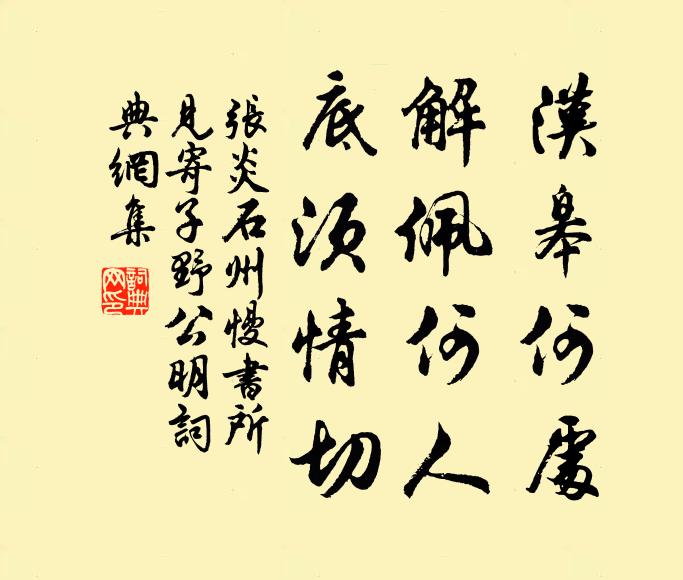 漢皋何處
解佩何人
底須情切
張炎石州慢書所
見寄子野公明詞
典網集
詞典
网印